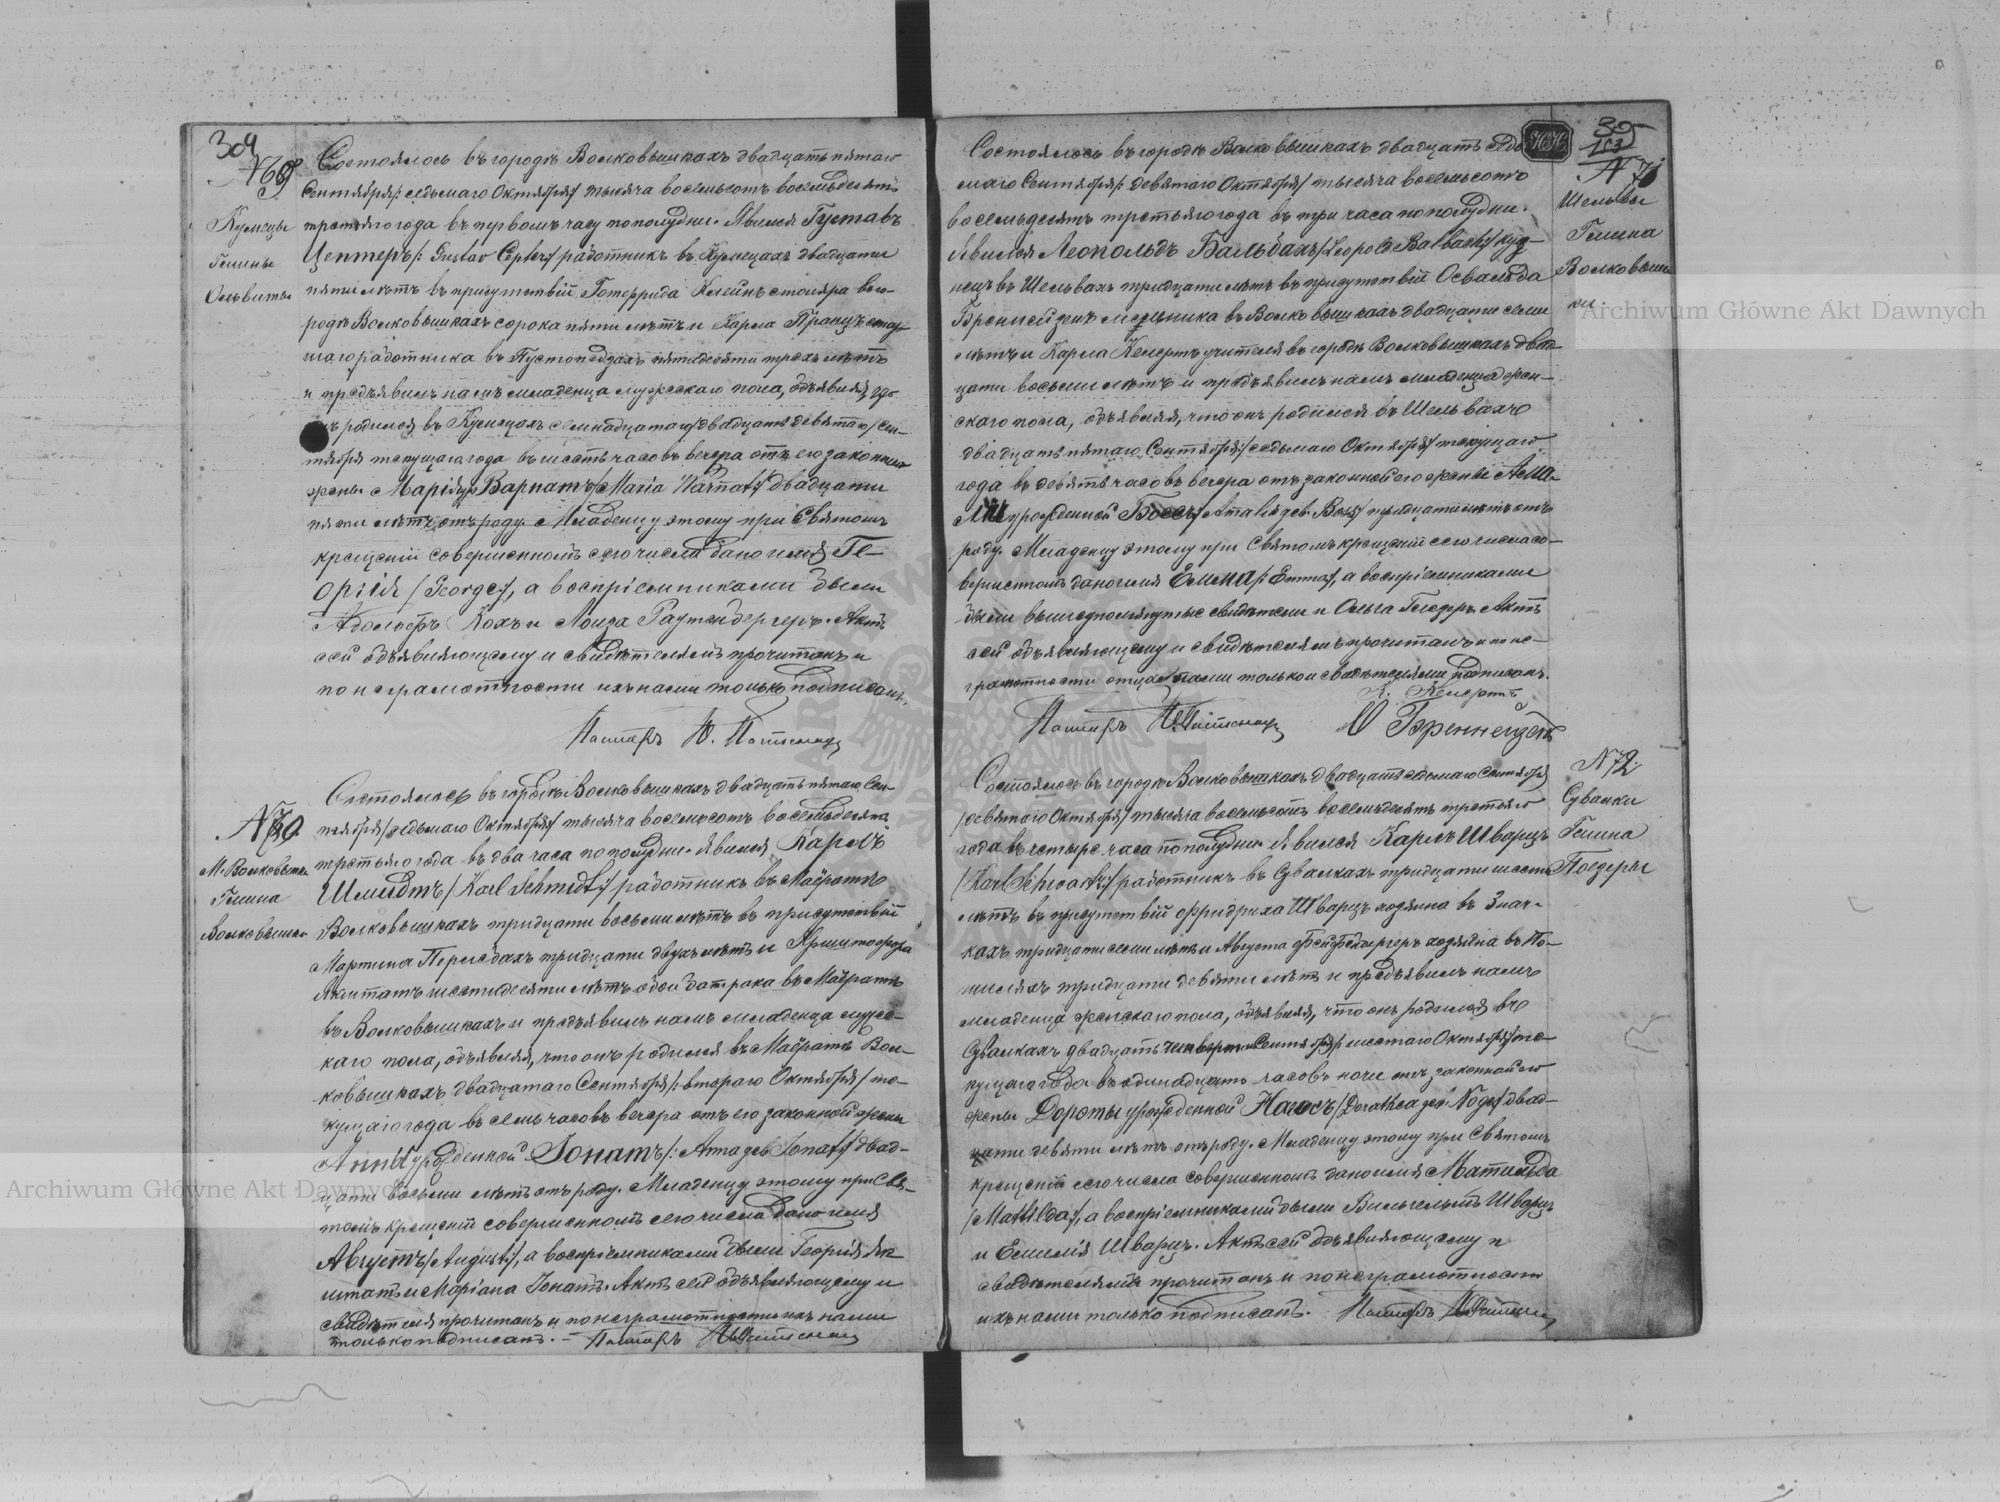 304
N 69
Кумецы
Гмины
Состоялось въ городѣ Волковышкахъ двадцать пятаго
Сентября /: седьмаго Октября/ тысяча восемьсотъ восемьдесятъ
третьяго года въ первомъ часу пополудни. Явился Густавъ
Цептеръ /: Gustav Cepter:/ работникъ въ Кумецахъ двадцати
пяти лѣтъ въ присутствіи Готфрида Клейнъ столяра въ го-
родѣ Волковышкахъ сорока пяти лѣтъ и Карла Пранцъ стар-
шаго работника въ пятидесяти трехъ лѣтъ
и предъявилъ намъ младенца мужескаго пола, объявляя что
онъ родился въ Кумецахъ семнадцатаго /двадцать девятаго/ Сен-
тября текущаго года въ шесть часовъ вечера отъ его законной
жены Маріи Варнатъ /Maria Warnat:/ двадцати
пяти лѣтъ отъ роду. Младенцу этому при Святомъ
крещеніи совершенномъ сего числа дано имя Ге-
оргій /George:/, а воспріемниками были
Адольфъ Кохъ и Луиза Раутенбергеръ. Актъ
сей объявляющему и свидѣтелямъ прочитанъ и
по неграмотности ихъ нами только подписанъ.
Пасторъ
N 70
М. Волковышки
Гмина
Волковышки
Состоялось въ городѣ Волковышкахъ двадцать пятаго Сен-
тября /седьмаго Октября/ тысяча восемьсотъ восемьдесятъ
третьяго года въ два часа пополудни. Явился Карлъ
Шмидтъ /Karl Schmidt:/ работникъ въ Маіоратѣ
Волковышкахъ тридцати восьми лѣтъ въ присутствіи
Мартина тридцати двухъ лѣтъ и Христофора
шестидесяти лѣтъ обои батрака въ Маіоратѣ
въ Волковышкахъ и предъявилъ намъ младенца муже-
каго пола, объявляя, что онъ родился въ Маіоратѣ Вол-
ковышкахъ двадцатаго Сентября /: втораго Октября/ те-
кущаго года въ семь часовъ вечера отъ его законной жены
Анны урожденной Іонатъ /: Anna geb Jonat:/ двад-
цати восьми лѣтъ отъ роду. Младенцу этому при Свя-
томъ крещеніи совершенномъ сего числа дано имя
Августъ /August:/, а воспріемниками были Георгій Як-
штатъ и Маріана Іонатъ. Актъ сей объявляющему и
свидѣтелямъ прочитанъ и по неграмотности ихъ нами
только подписанъ. — Пасторъ
35
N 71
Шельвы
Гмина
Волковыш-
ки
Состоялось въ городѣ Волковышкахъ двадцать седь-
маго Сентября /: девятаго Октября/ тысяча восемьсотъ
восемьдесятъ третьяго года въ три часа пополудни.
Явился Леопольдъ Бальбахъ /Leopold Balbach:/ куз-
нецъ въ Шельвахъ тридцати лѣтъ въ присутствіи Освальда
Бреннейзенъ мельника въ Волковышкахъ двадцати семи
лѣтъ и Карла Кемертъ учителя въ городѣ Волковышкахъ двад-
цати восьми лѣтъ и предъявилъ намъ младенца жен-
скаго пола, объявляя, что онъ родился въ Шельвахъ
двадцать пятаго Сентября /седьмаго Октября/ текущаго
года въ девять часовъ вечера отъ законной его жены Ама-
ліи урожденной Боссъ /Amalia geb. Boss/ тридцати лѣтъ отъ
роду. Младенцу этому при Святомъ крещеніи сего числа со-
вершенномъ дано имя Емма /: Emma:/, а воспріемниками
были вышеупомянутые свидѣтели и Ольга Актъ
сей объявляющему и свидѣтелямъ прочитанъ и по не-
грамотности отца нами только и свидѣтелями подписанъ.
К. Кемертъ
Пасторъ О Бреннейзенъ
N 72
Сувалки
Гмина
Поезеры
Состоялось въ городѣ Волковышкахъ двадцать седьмаго Сентября
/девятаго Октября/ тысяча восемьсотъ восемьдесятъ третьяго
года въ четыре часа пополудни. Явился Карлъ Шварцъ
/Karl Schwartz:/ работникъ въ Сувалкахъ тридцати шести
лѣтъ въ присутствіи Фридриха Шварцъ хозяина въ Знач-
кахъ тридцати семи лѣтъ и Августа хозяина въ По-
тридцати девяти лѣтъ и предъявилъ намъ
младенца женскаго пола, объявляя, что онъ родился въ
Сувалкахъ двадцать четвертаго Сентября /: шестаго Октября/ те-
кущаго года въ одинадцать часовъ ночи отъ законной его
жены Дороты урожденной Ногосъ /Dorathea geb. Noges/ двад-
цати девяти лѣтъ отъ роду. Младенцу этому при Святомъ
крещеніи сего числа совершенномъ дано имя Матильда
/Mathilda:/, а воспріемниками были Вильгельмъ Шварцъ
и Емилія Шварцъ. Актъ сей объявляющему и
свидѣтелямъ прочитанъ и по неграмотности
ихъ нами только подписанъ. Пасторъ
Archiwum Główne Akt Dawnych
Archiwum Główne Akt Dawnych